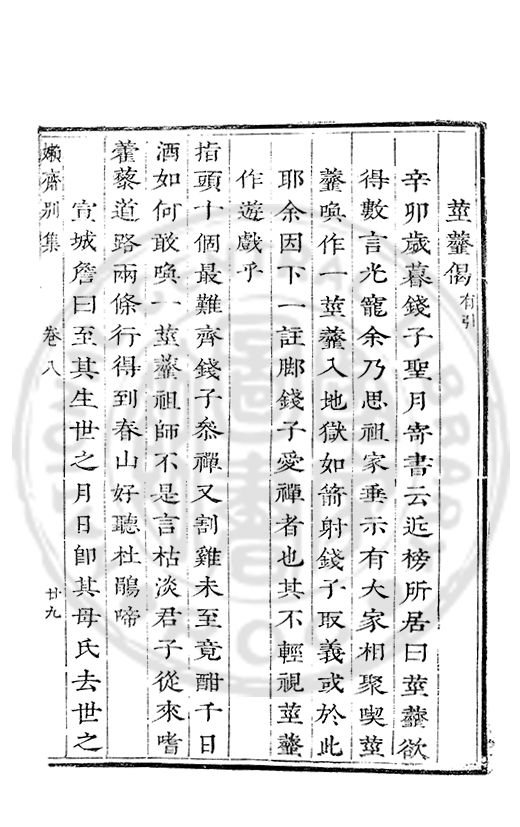 莖虀偈有引
辛卯歲暮錢子聖月寄書云近榜所居曰莖虀欲
得數言光寵余乃思祖家垂示有大家相聚喫莖
虀喚作一莖虀入地獄如箭射錢子取義或於此
耶余因下一註脚錢子愛禪者也其不輕視莖虀
作遊戲乎
指頭十個最難齊錢子參禪又割雞未至竟酣千日
酒如何敢喚一莖虀祖師不是言枯淡君子從來嗜
藿藜道路兩條行得到春山好聽杜鵑啼
宣城詹曰至其生世之月日卽其母氏去世之
嬾齋別集
卷八
廿九